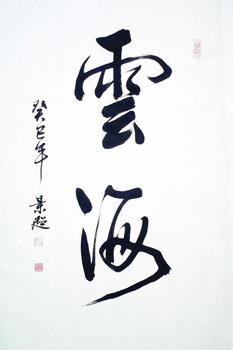 雲海
癸巳年 景超